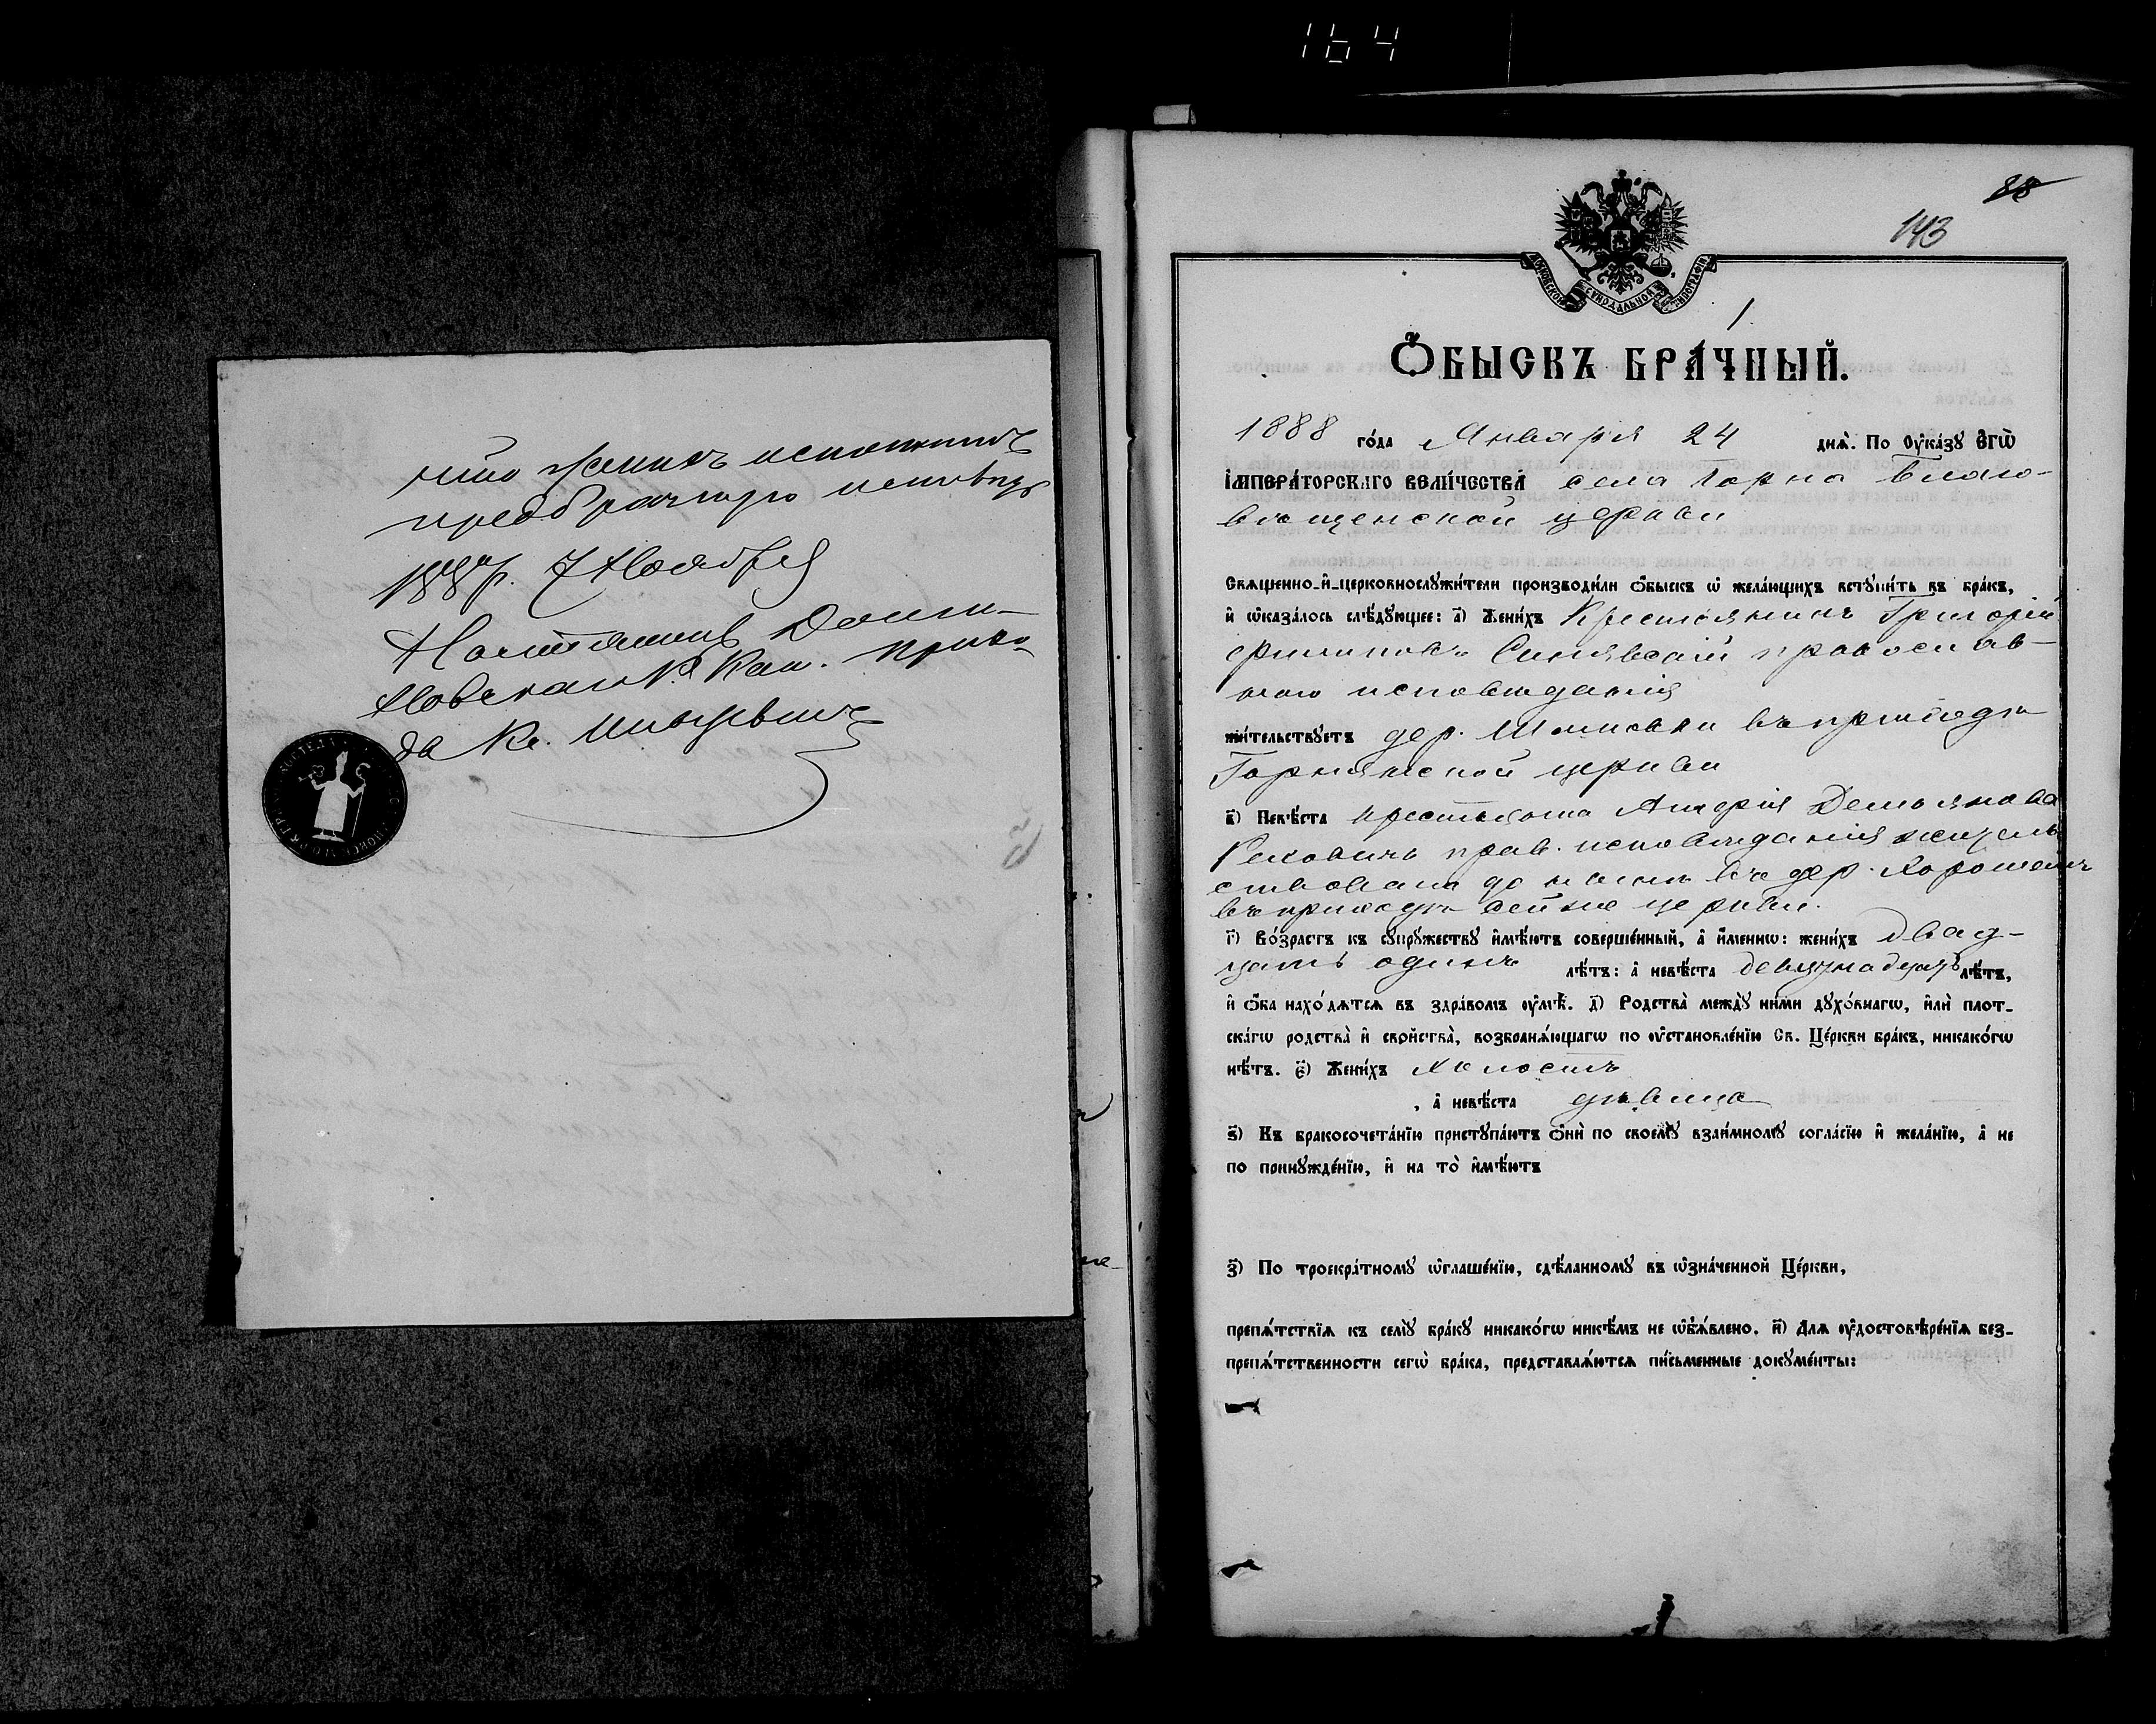 164
что женихъ исполнилъ
предбрачную исповѣдь
1887 г. 7 Ноября
Настоятель
новскаго Р. Кат. прихо-
да Кс.
88
143
МОСКОВСКОЙ СѴНОДАЛЬНОЙ ТИПОГРАФІИ
1.
Ѻ҆БЫСКЪ БРА́ЧНЫЙ.
1888 го́да Января 24 днѧ̀. По ᲂу҆ка́зꙋ Є҆ГѠ̀
І҆МПЕРА́ТОРСКАГО ВЕЛИ́ЧЕСТВА села Горна Благо-
вѣщенской церкви
Свѧщенно-и҆-церковнослꙋжи́тели производи́ли ѻ҆́быскъ ѡ҆ жела́ющихъ встꙋпи́ть въ бра́къ,
и҆ ѡ҆каза́лось слѣ́дꙋющее: а҃) Жени́хъ Крестьянинъ Григорій
Филиповъ Синявскій православ-
наго исповѣданія
жи́тельствꙋетъ дер. въ приходѣ
Горнянской церкви
в҃) Невѣ́ста крестьянка Демьянова
прав. исповѣданія житель-
ствовала до нынѣ въ дер.
въ приходѣ сей же церкви.
г҃) Во́зрастъ къ сꙋпрꙋ́жествꙋ и҆мѣ́ютъ соверше́нный, а҆ и҆́меннѡ: жени́хъ двад-
цать одинъ лѣ́тъ: а҆ невѣ́ста девятнадцать лѣ́тъ,
и҆ ѻ҆́ба нахо́дѧтсѧ въ здра́вомъ ᲂу҆мѣ̀. д҃) Родства̀ междꙋ̀ ни́ми дꙋхо́внагѡ, и҆лѝ плот-
ска́гѡ родства̀ и҆ сво́йства̀, возбранѧ́ющагѡ по ᲂу҆становле́нїю Св. Це́ркви бра́къ, никако́гѡ
нѣ́тъ. є҃) Жени́хъ холостъ
, а҆ невѣ́ста дѣвица
ѕ҃) Къ бракосочета́нїю пристꙋпа́ютъ ѻ҆нѝ по своемꙋ̀ взаи́мномꙋ согла́сїю и҆ жела́нїю, а҆ не
по принꙋжде́нїю, и҆ на то̀ и҆мѣ́ютъ
з҃) По троекра́тномꙋ ѡ҆глаше́нїю, сдѣ́ланномꙋ въ ѡ҆зна́ченной Це́ркви,
препѧ́тствїѧ къ семꙋ̀ бра́кꙋ никако́гѡ никѣ́мъ не ѡ҆б̾ѧ́влено. и҃) Длѧ ᲂу҆достовѣре́нїѧ без-
препѧ́тственности сегѡ̀ бра́ка, представлѧ́ютсѧ пи́сьменные докꙋме́нты: